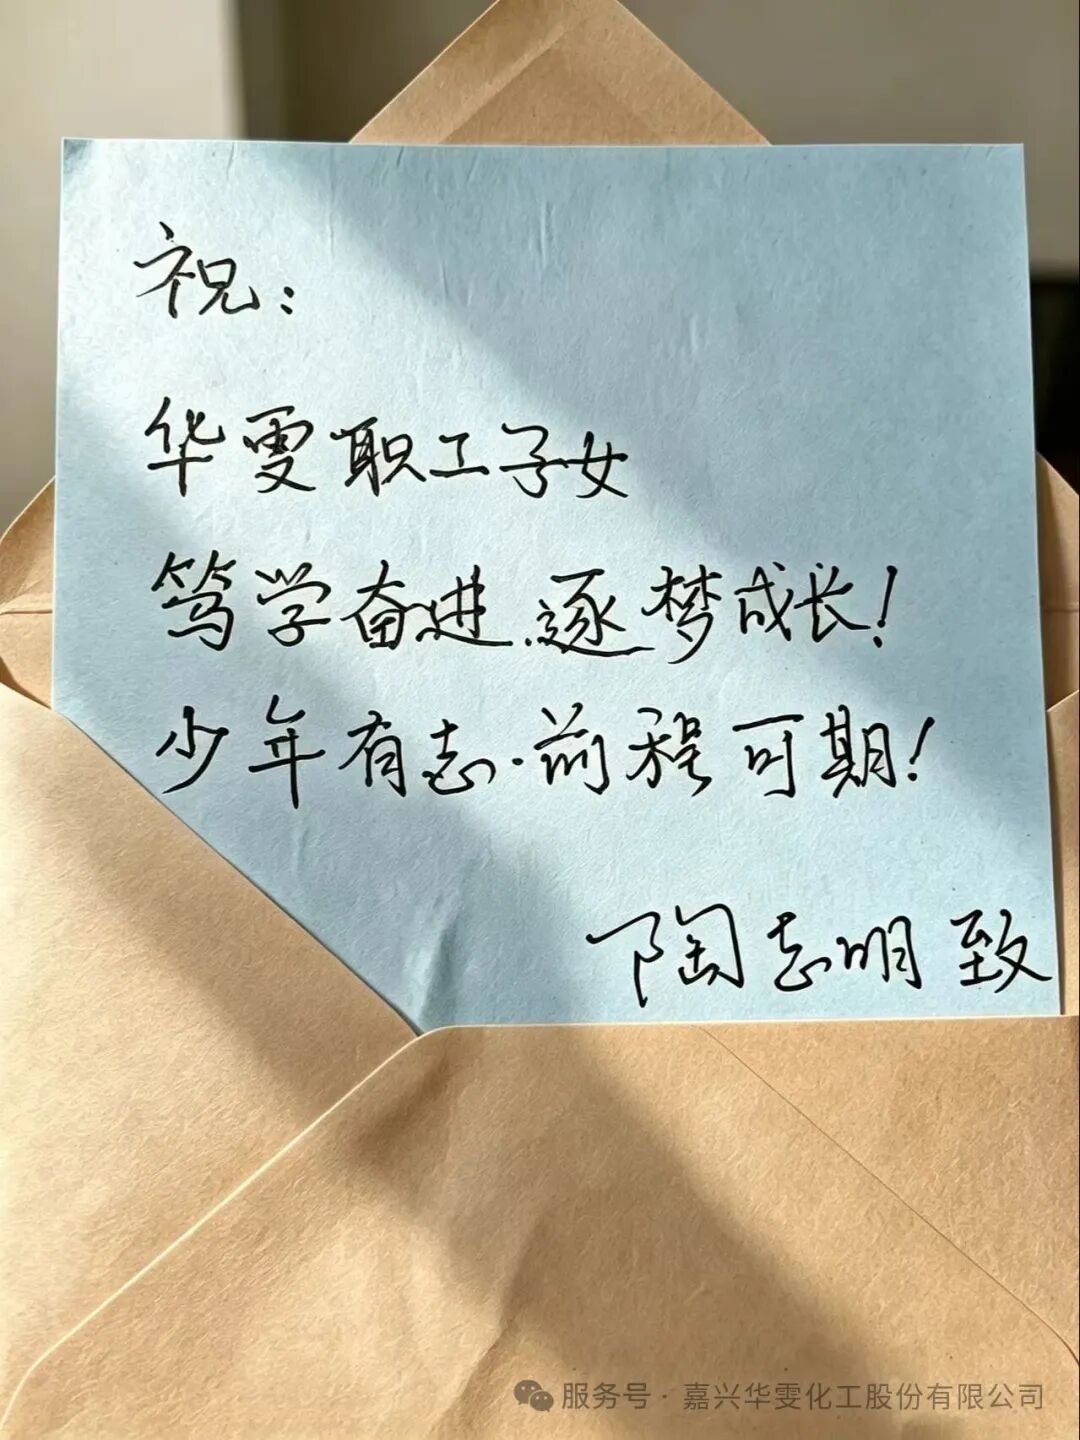 祝：
华雯职工子女
笃学奋进.逐梦成长！
少年有志·前程可期！
陶志明 致
服务号·嘉兴华雯化工股份有限公司